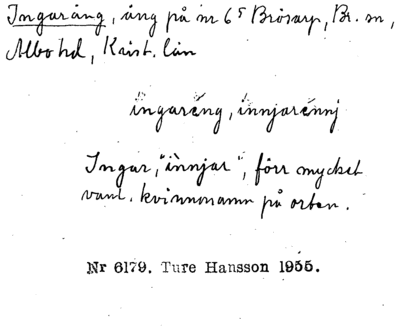 Ingaräng, äng på nr 6⁵ Brösarp, Br. sn,
Albo hd, Krist. län
ìngaréng, ìnnjarénnj
Ingar, "ìnnjar", förr mycket
vanl. kvinnonamn på orten.
Nr 6179. Ture Hansson 1955.